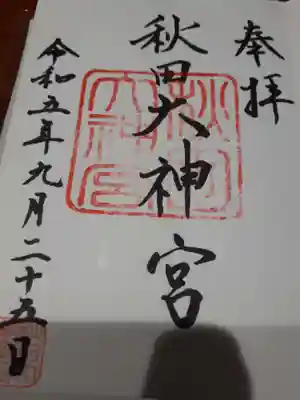 奉拝
秋田大神宮
令和五年九月二十五日